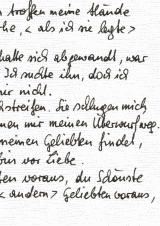 troffen meine Hände
he, < als ich sie legte >
hatte sich abgewandt, war
Ich suchte ihn, doch ich
mir nicht.
streifen. Sie schlugen mich
men mir meinen Überwurf weg.
meinen Geliebten findet,
bin vor Liebe.
ten voraus, du Schönste
< andern > Geliebten voraus,